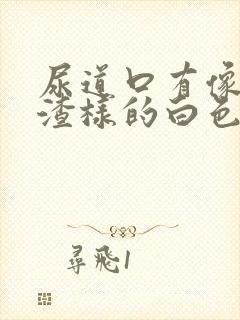 尿道口有像
渣样的白色
尋飛1